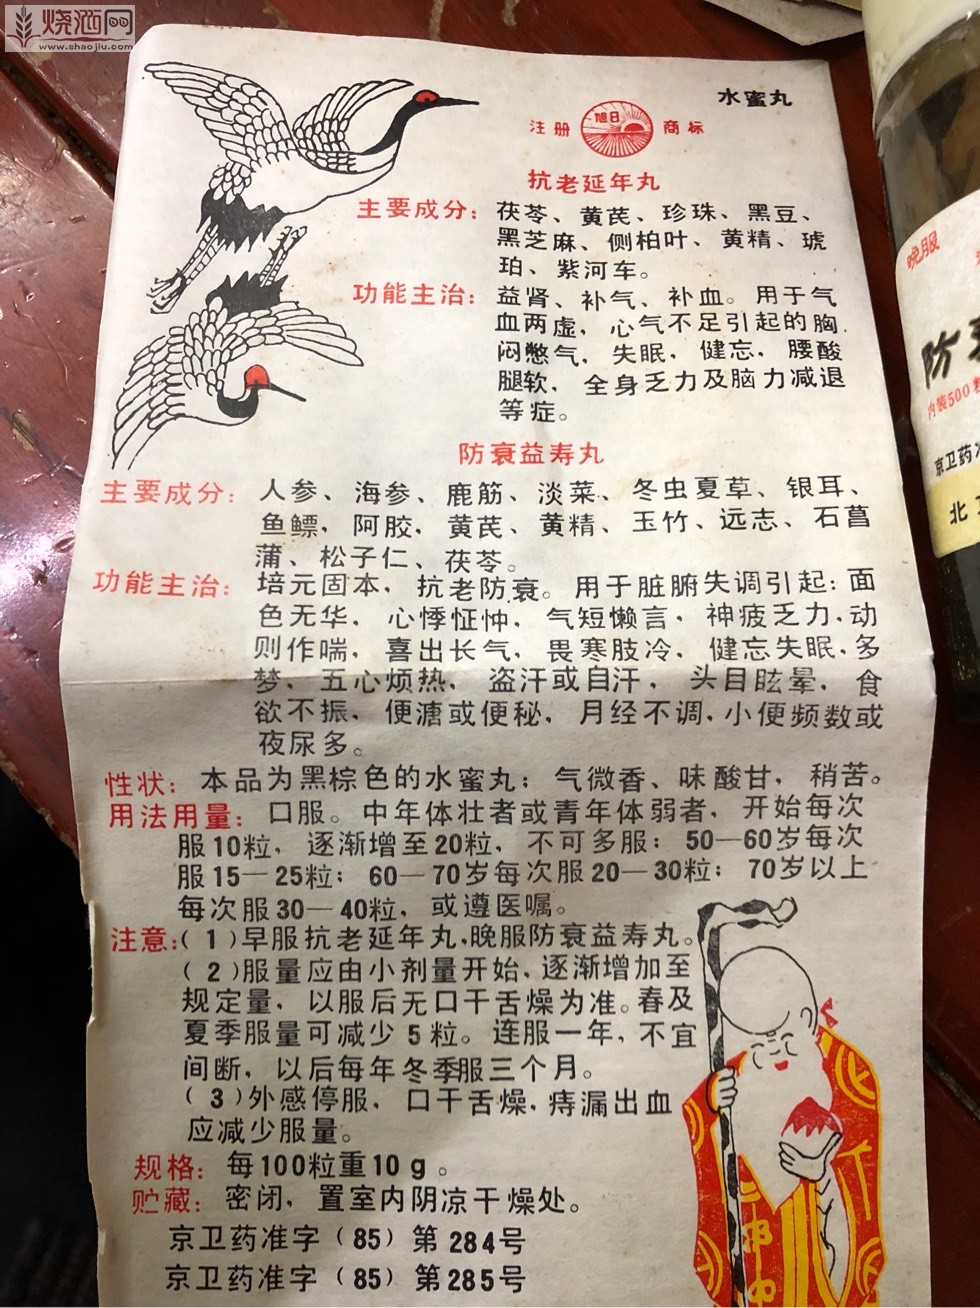 烧酒网
www.shaojiu.com
水蜜丸
注册 旭日 商标
抗老延年丸
主要成分：茯苓、黄芪、珍珠、黑豆、
黑芝麻、侧柏叶、黄精、琥
珀、紫河车。
功能主治：益肾、补气、补血。用于气
血两虚，心气不足引起的胸
闷憋气，失眠，健忘，腰酸
腿软，全身乏力及脑力减退
等症。
防衰益寿丸
主要成分：人参、海参、鹿筋、淡菜、冬虫夏草、银耳、
鱼鳔，阿胶，黄芪、黄精、玉竹、远志、石菖
蒲、松子仁、茯苓。
功能主治：培元固本，抗老防衰。用于脏腑失调引起：面
色无华，心悸怔忡，气短懒言，神疲乏力，动
则作喘，喜出长气，畏寒肢冷，健忘失眠，多
梦，五心烦热，盗汗或自汗，头目眩晕，食
欲不振，便溏或便秘，月经不调，小便频数或
夜尿多。
性状：本品为黑棕色的水蜜丸；气微香、味酸甘，稍苦。
用法用量：口服。中年体壮者或青年体弱者，开始每次
服10粒，逐渐增至20粒，不可多服；50—60岁每次
服15—25粒；60—70岁每次服20—30粒；70岁以上
每次服30—40粒，或遵医嘱。
注意：（1）早服抗老延年丸，晚服防衰益寿丸。
（2）服量应由小剂量开始，逐渐增加至
规定量，以服后无口干舌燥为准。春及
夏季服量可减少5粒。连服一年，不宜
间断，以后每年冬季服三个月。
（3）外感停服，口干舌燥，痔漏出血
应减少服量。
规格：每100粒重10g。
贮藏：密闭，置室内阴凉干燥处。
京卫药准字（85）第284号
京卫药准字（85）第285号
晚服
防
内装500粒
京卫药准
北